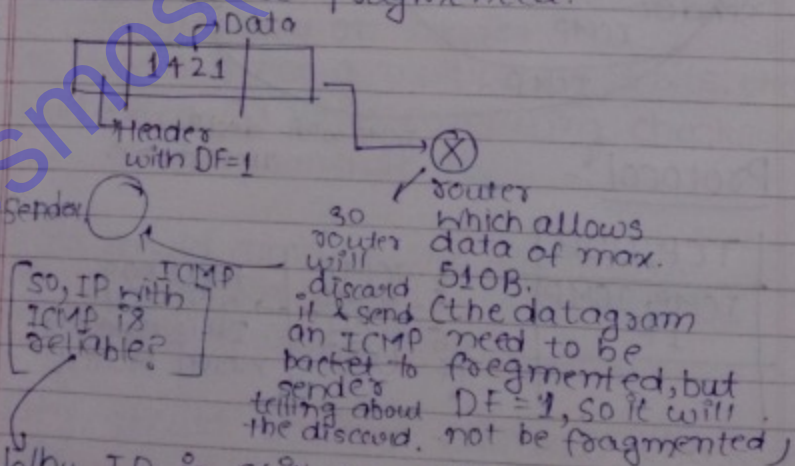 fragmented.
Data
1421
Header
with DF=1
X
router
which allows
data of max.
510B.
(the datagram
need to be
fregmented, but
DF=1, so it will
not be fragmented)
so
router
will
discard
it & send
an ICMP
packet to
sender
telling about
the discard.
Sender
ICMP
[So, IP with
ICMP is
reliable?]
smost